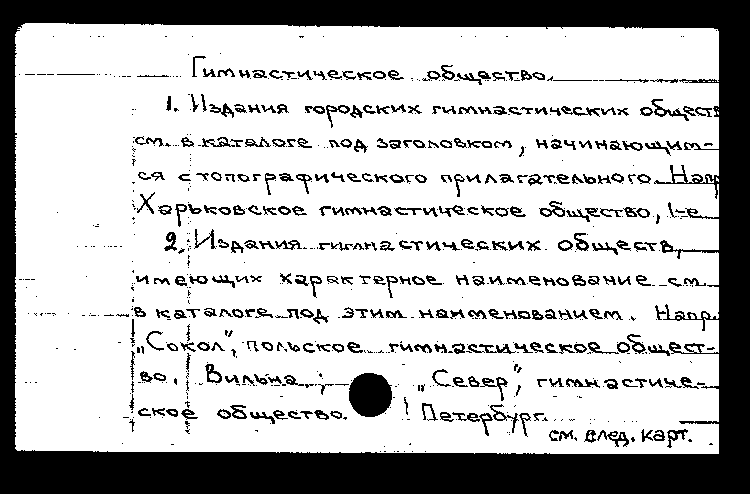 Гимнастическое общество.
1. Издания городских гимнастических обществ
см. в каталоге под заголовком, начинающим-
ся с топографического прилагательного. Напр
Харьковское гимнастическое общество, 1-е
2. Издания гимнастических обществ,
имеющих характерное наименование см.
в каталоге под этим наименованием. Напр.
„Сокол", польское гимнастическое общест-
во. Вильна. ; „Север", гимнастиче-
ское общество. Петербург.
см. след. карт.